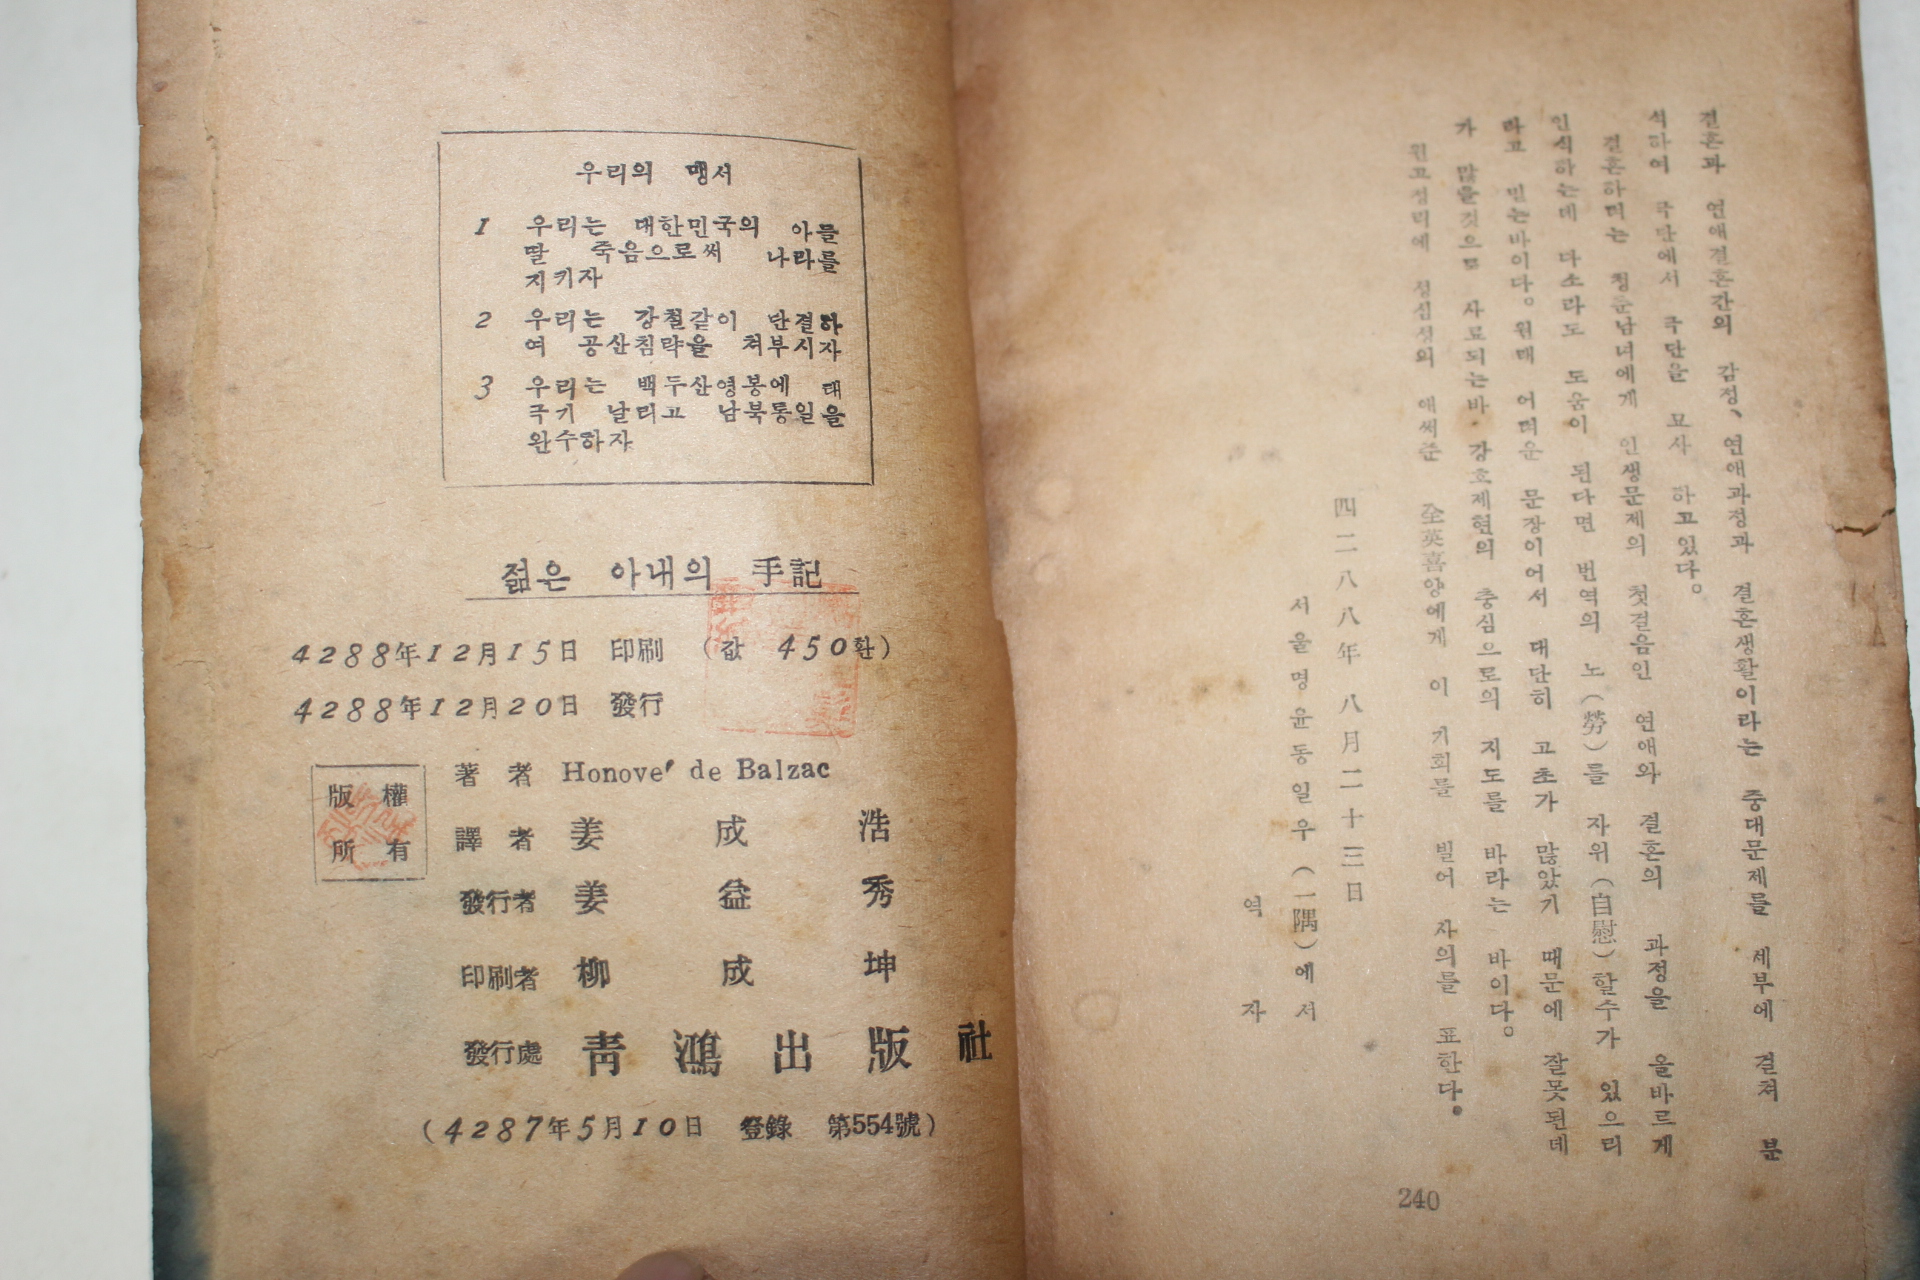 결혼과 연애결혼간의 감정、연애과정과 결혼생활이라는 중대문제를 세부에 결쳐 분
석하여 극단에서 극단을 묘사 하고있다。
결혼하려는 청춘남녀에게 인생문제의 첫걸음인 연애와 결혼의 과정을 올바르게
인식하는데 다소라도 도움이 된다면 번역의 노(勞)를 자위(自慰)할수가 있으리
라고 믿는바이다。원래 어려운 문장이어서 대단히 고초가 많았기 때문에 잘못된데
가 많을것으로 사료되는바 강호제현의 충심으로의 지도를 바라는 바이다。
원고정리에 성심성의 애써준 全英喜양에게 이 기회를 빌어 사의를 표한다。
四二八八年 八月二十三日
서울명윤동일우(一隅)에서
역 자
240
우리의 맹서
1 우리는 대한민국의 아들
딸 죽음으로써 나라를
지키자
2 우리는 강철같이 단결하
여 공산침략을 쳐부시자
3 우리는 백두산영봉에 태
극기 날리고 남북통일을
완수하자
젊은 아내의 手記
4288年12月15日 印刷 (값 450환)
4288年12月20日 發行
版權
所有
著者 Honove' de Balzac
譯者 姜成浩
發行者 姜益秀
印刷者 柳成坤
發行處 靑鴻出版社
(4287年5月10日 登錄 第554號)